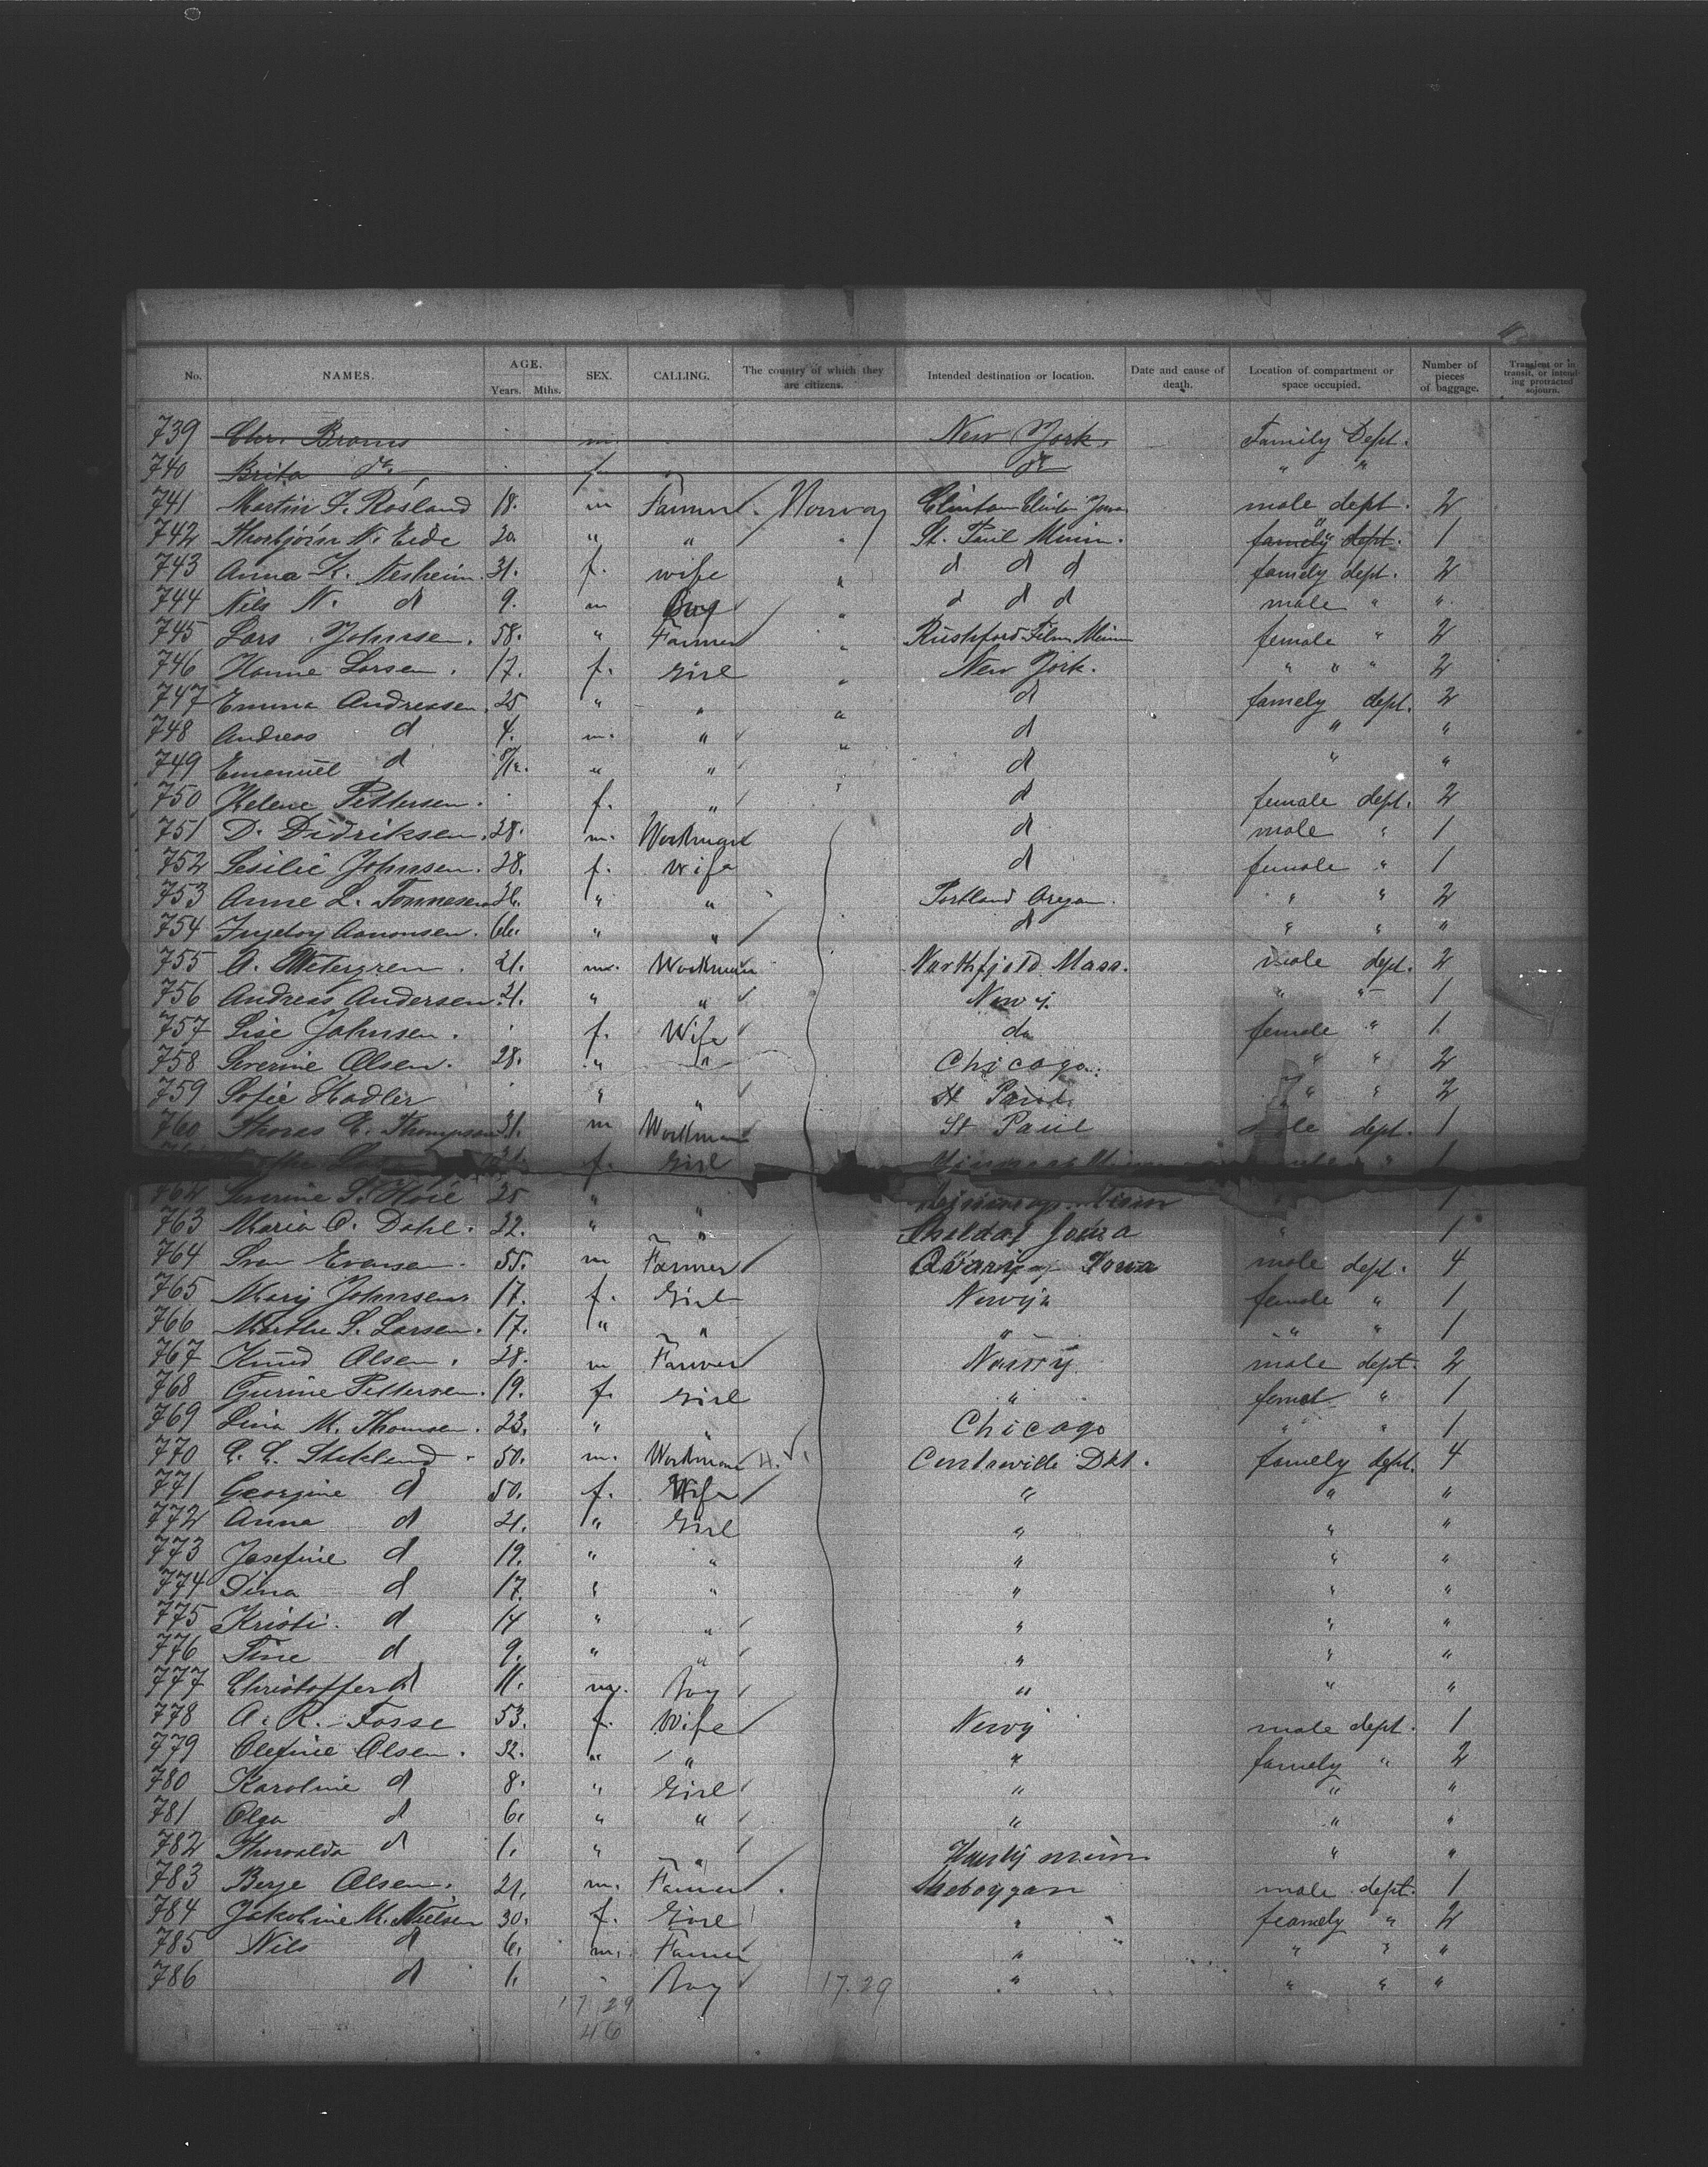 No. NAMES. AGE. Years. Mths. SEX. CALLING. The country of which they are citizens. Intended destination or location. Date and cause of death. Location of compartment or space occupied. Number of pieces of baggage. Transient or in transit, or intending protracted sojourn.
739 Chr. Broms m. New York. Family Dept.
740 Brita do. f. do " "
741 Martin F. Rosland 18. m Farmer. Norway Clinton Clinton Jowa male dept. 2
742 Thorbjörn N. Eide 20. " " " St. Paul Minn. family dept. 1
743 Anna K. Nesheim. 31. f. wife " d d d famely dept. 2
744 Nils N. d 9. m Boy " d d d male " "
745 Lars Johnsen. 58. " Farmer " Rushford Film Minn female " 2
746 Hanne Larsen. 17. f. Girl " New York. " " " 2
747 Emma Andreasen. 25 " " " d famely dept. 2
748 Andreas d 4. m. " " d " "
749 Emanuel d " " d " "
750 Helene Pettersen. f. " d female dept. 2
751 D. Didriksen. 28. m. Workman d male " 1
752 Lesilie Johnsen. 28. f. wife d female " 1
753 Anne L. Tonnesen " " Portland Oregon. " " 2
754 Ingeboy Aanonsen. 66. " " d " " "
755 O. Wetergren. 21. m. Workman Northfjeld Mass. male dept. 2
756 Andreas Andersen. 21. " " New j. " " 1
757 Lise Johnsen. f. Wife do female " 1
758 Severine Olsen. 28. " " Chicago. " " 2
759 Sofie Hadler " " St Paul. " " 2
760 Thores E. Thompson 31. m Workman St Paul male dept. 1
f. Girl " 1
Severine T. 25 " " 1
763 Maria O. Dahl. 22. " " Jowa " 1
764 Sven Evensen. 55. m Farmer Iowa male dept. 4
765 Mary Johnsen 17. f. Girl female " 1
766 Marthe S. Larsen. 17. " " " " " 1
767 Knud Olsen. 28. m Farmer male dept. 2
768 Gurine Pettersen. 19. f. Girl " femal " 1
769 Lina M. Thomsen. 23. " " Chicago " " 1
770 50. m. Workman Centreville Dkt. famely dept. 4
771 Georgine d 50. f. Wife " " "
772 Anna d 21. " Girl " " "
773 Josefine d 19. " " " " "
774 Sina d 17. " " " " "
775 Kristi. d 14 " " " " "
776 Tine d 9. " " " " "
777 Christoffer d 11. m. Boy " " "
778 A. R. Fosse 53. f. Wife male dept. 1
779 Olefine Olsen. 32. " " " famely " 2
780 Karoline d 8. " Girl " " "
781 Olga d 6. " " " " "
782 Thorvalda d 1. " " minn " "
783 Berje Olsen. 21. m. Farmer Sheboygan male dept. 1
784 Jakoline M. Nielsen 30. f. Girl " feamely " 2
785 Nils d 6. m. Farmer " " " "
786 d 1. " Boy 17.29 " " " "
17 29
46